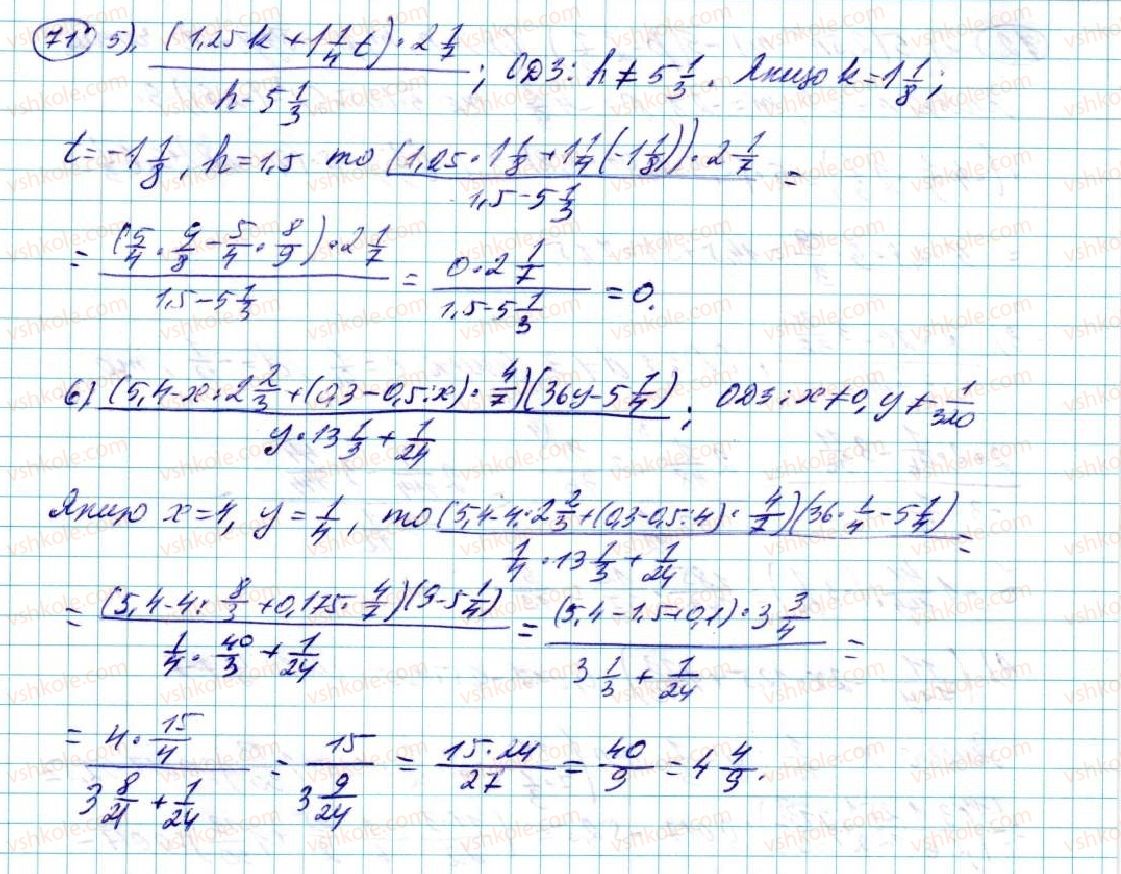 71. 5). ((1,25k + 1 1/4 t) · 2 1/7) / (h - 5 1/3); ОДЗ: h ≠ 5 1/3. Якщо k = 1 1/8;
t = -1 1/8, h = 1,5 то ((1,25 · 1 1/8 + 1 1/4 (-1 1/8)) · 2 1/7) / (1,5 - 5 1/3) =
= ((5/4 · 9/8 - 5/4 · 8/9) · 2 1/7) / (1,5 - 5 1/3) = (0 · 2 1/7) / (1,5 - 5 1/3) = 0.
6) ((5,4 - x : 2 2/3 + (0,3 - 0,5 : x) · 4/7)(36y - 5 1/4)) / (y · 13 1/3 + 1/24); ОДЗ: x ≠ 0, y ≠ 1/320
Якщо x = 4, y = 1/4, то ((5,4 - 4 : 2 2/3 + (0,3 - 0,5 : 4) · 4/7)(36 · 1/4 - 5 1/4)) / (1/4 · 13 1/3 + 1/24) =
= ((5,4 - 4 : 8/3 + 0,175 · 4/7)(9 - 5 1/4)) / (1/4 · 40/3 + 1/24) = ((5,4 - 1,5 + 0,1) · 3 3/4) / (3 1/3 + 1/24) =
= (4 · 15/4) / (3 8/21 + 1/24) = 15 / (3 9/24) = (15 · 24) / 27 = 40/9 = 4 4/9.